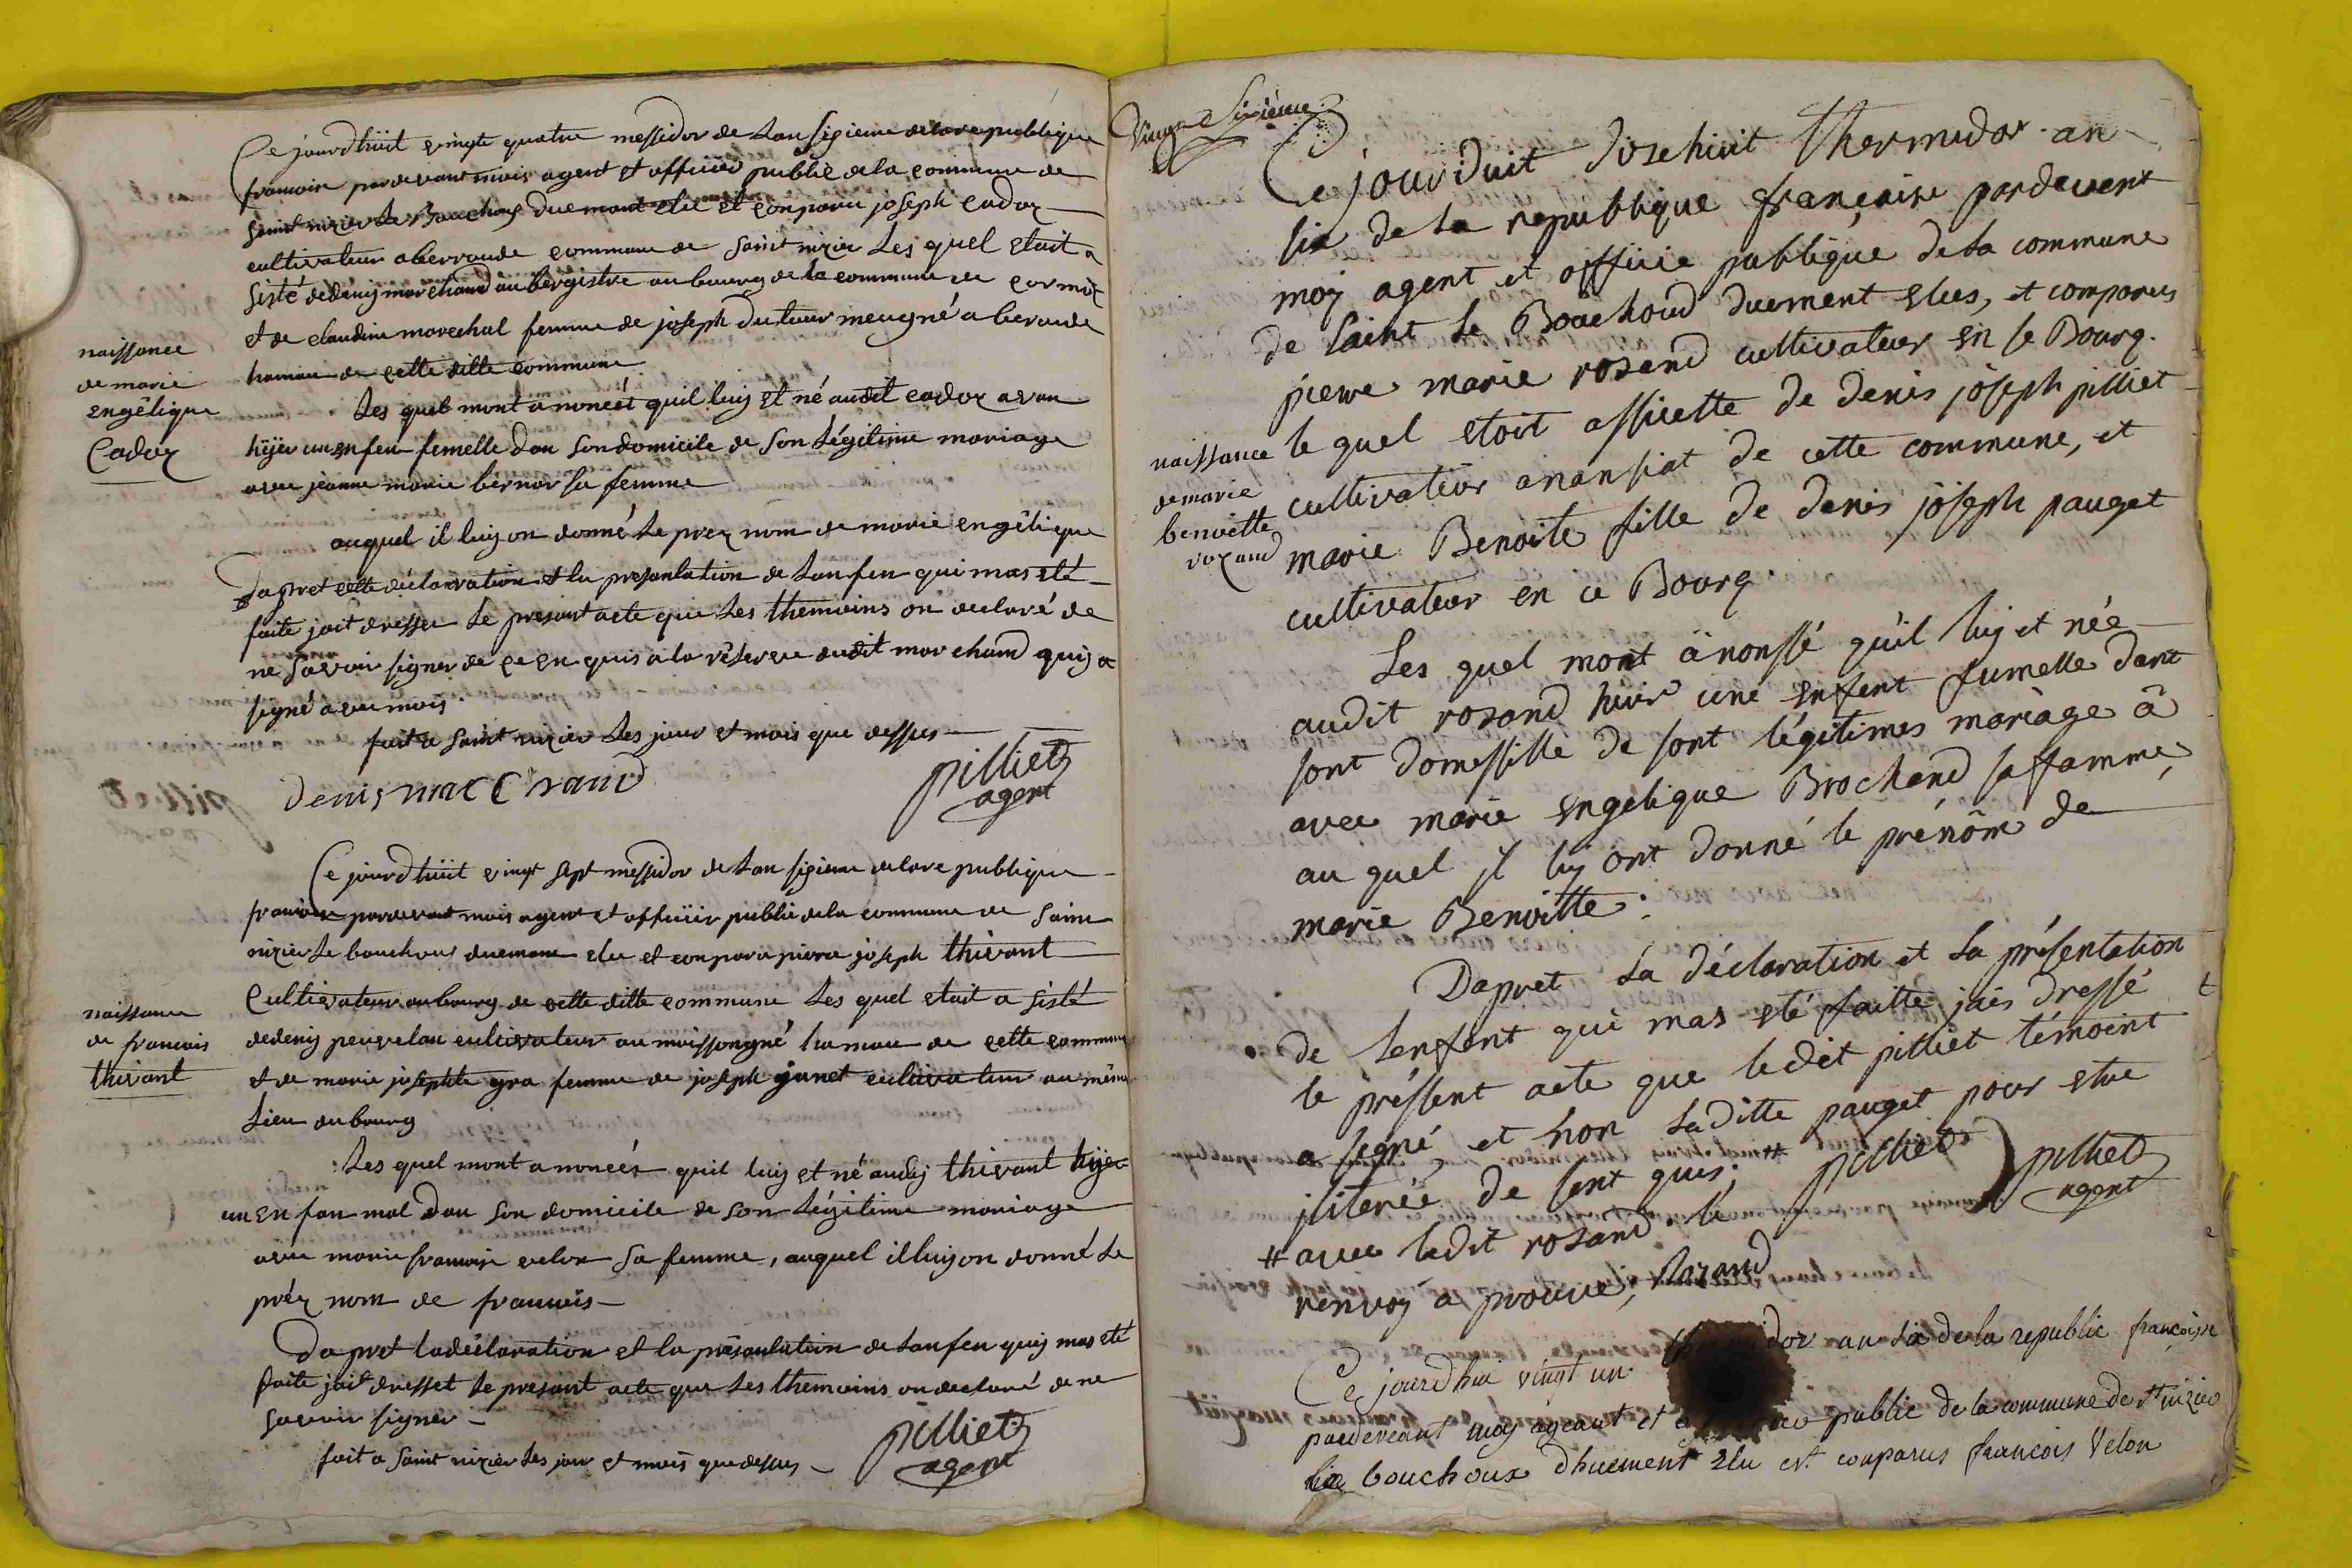 Ce jourdhüit vingte quatre messidor de Lan sigieme delarepublique
francoise pardevant mois agent et officiér publiè dela commune de
saint nizier Le Bouchoux duemant elu et conparu joseph cadoz
cultivateur aberronde commune de saint nizier Les quel etait a
sisté dedenis marchand aubergistre au bourg de la commune de cormoz
et de claudine marechal femme de joseph dutour meugné a beronde
hamau de cette ditte commune
Les quel mont anoncéé quil luij et né audit cadoz avan
hÿer un enfen femelle dan son domicile de son Légitime mariage
avec jeanne marie bernar sa femme
auquel il luij on donné Le prez nom de marie engélique
naissance
de marie
engélique
Cadoz
Dapret cette déclaration et la presantation de Lanfen qui mas eté
faite jait dresser Le presant acte que Les themoins on declaré de
ne savoir signer de ce enquis a la réserve dudit marchand quij a
signé avec mois
fait a saint nizier Les jour et mois que dessus
denis marchand
pilliet
agent
Ce jourdhüit vingt sept messidor de Lan sigieme delare publique
francoise pardevant mois agent et officiir publiè dela commune de saint
nizier Le bouchous duemant elu et conparu piera joseph thivant
Cultivateur au bourg de cette ditte commune Les quel etait a sisté
dedenis peuvelau cultivateur au moissongné hamau de cette commune
et de marie josephte gra femme de joseph janet cultivateur au même
Lieu du bourg
naissance
de francois
thivant
Les quel mont anonceér quil luij et né audij thivant hÿer
un enfan mal Dan son domicile de son Légitime mariage
avec marie francoise velon sa femme, auquel il luij on donné Le
préz nom de francois
Dapret Ladéclaration et la présantation de Lanfen quij mas eté
faite jait dresset Le presant acte que Les themoins on declaré de ne
savoir signer
fait a saint nizier Les jour et mois que dessus
pilliet
agent
sixième
Ce jourduit dixehuit thermidor an
six de la republique françaisse pardevent
moy agent et officie publique de la commune
de saint Le Bouchoud duement elues, et comparus
pierre marie rozand cultivateur en se Bourg.
le quel etoit assicette de denis joseph pilliet
cultivateur a nansiat de cette commune, et
marie Benoite fille de denis joseph pauget
cultivateur en ce Bourg.
naissance
de marie
benoitte
rozand
Les quel mont anonssé quil luy et née
audit rozand huir une enfent fumelle dant
sont domessille de sont légitimes mariage â
avec marie engelique Brochand saffamme,
au quel il luy ont donné le prénôm de
marie Benoitte.
Dapret La déclaration et La présentation
de Lenfent qui mas eté faitte jais dressé
le préssent acte que ledit pilliet témoint
a segné, et non Laditte pauget pour etre
jliterée de sent quis; # pilliet
# avec ledit rozand. le
renvoy a prouvé; Rozand
pilliet
agent
Ce jourdhui vingt un thermidor an six de la republic françoise
pardeveant moy ageant et public de la commune de St nizier
le bouchoux dhuement Elu est conparus francois Velon